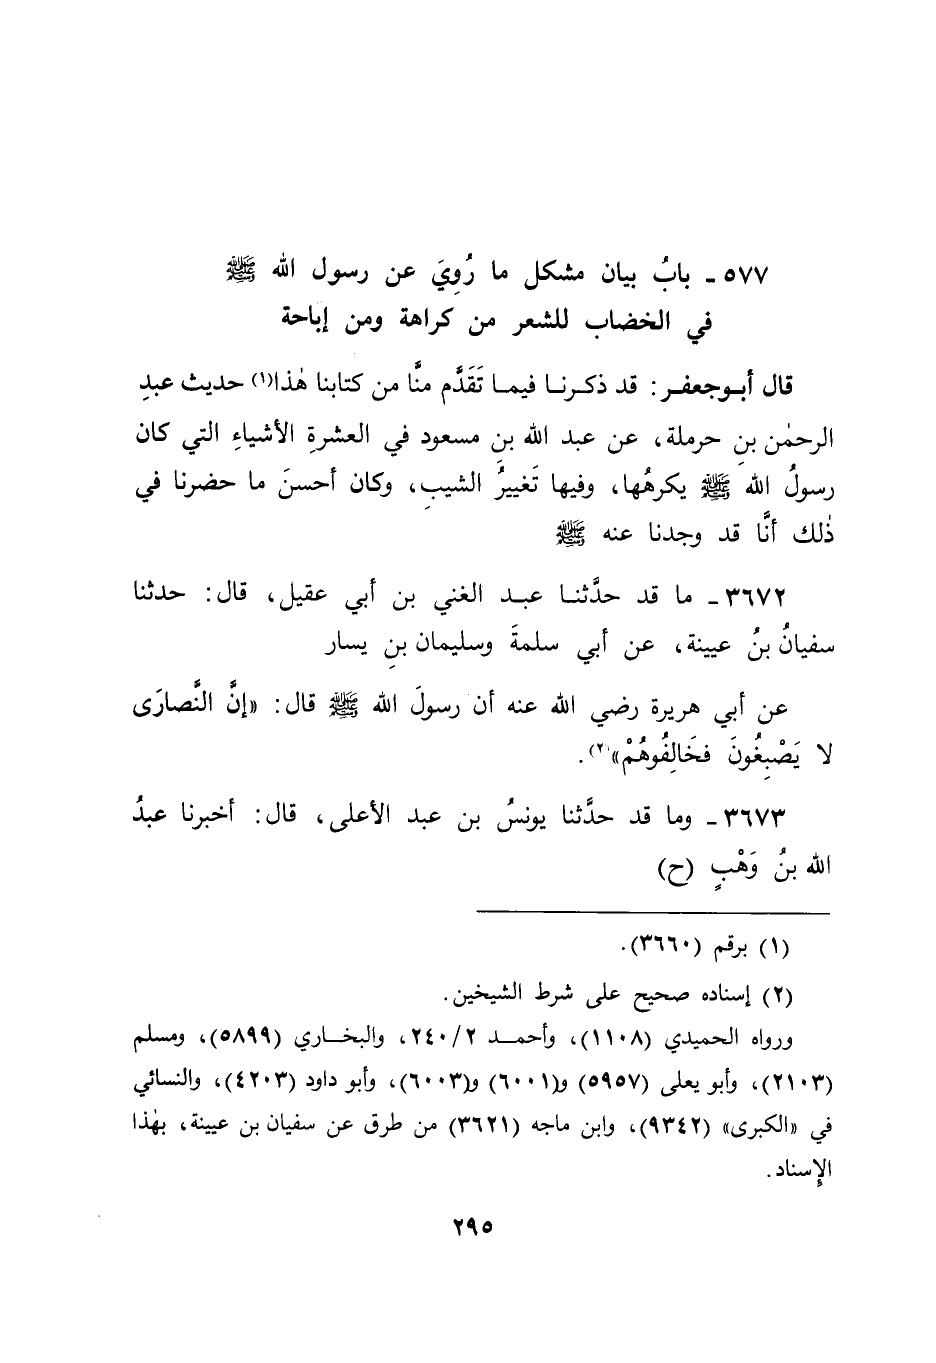 ٥٧٧ ـ بابُ بيان مشكل ما رُوِيَ عن رسول الله ﷺ
في الخضاب للشعر من كراهة ومن إباحة
قال أبـوجعفـر: قد ذكـرنـا فيمـا تَقَدَّم منَّا من كتابنا هٰذا(١) حديث عبدِ
الرحمٰن بنِ حرملة، عن عبد الله بنِ مسعود في العشرةِ الأشياءِ التي كان
رسولُ الله ﷺ يكرهُها، وفيها تَغييرُ الشيبِ، وكان أحسنَ ما حضرنا في
ذٰلك أنَّا قد وجدنا عنه ﷺ
٣٦٧٢ ـ ما قد حدَّثنـا عبـد الغني بن أبي عقيل، قال: حدثنا
سفيانُ بنُ عيينة، عن أبي سلمةَ وسليمان بنِ يسار
عن أبي هريرة رضي الله عنه أن رسولَ الله ﷺ قال: «إنَّ النَّصارَى
لا يَصْبِغُونَ فخَالِفُوهُمْ»(٢).
٣٦٧٣ ـ وما قد حدَّثنا يونسُ بن عبد الأعلى، قال: أخبرنا عبدُ
الله بنُ وَهْبٍ (ح)
(١) برقم (٣٦٦٠).
(٢) إسناده صحيح على شرط الشيخين.
ورواه الحميدي (١١٠٨)، وأحمـد ٢/٢٤٠، والبخـاري (٥٨٩٩)، ومسلم
(٢١٠٣)، وأبو يعلى (٥٩٥٧) و(٦٠٠١) و(٦٠٠٣)، وأبو داود (٤٢٠٣)، والنسائي
في «الكبرى» (٩٣٤٢)، وابن ماجه (٣٦٢١) من طرق عن سفيان بن عيينة، بهٰذا
الإِسناد.
٢٩٥